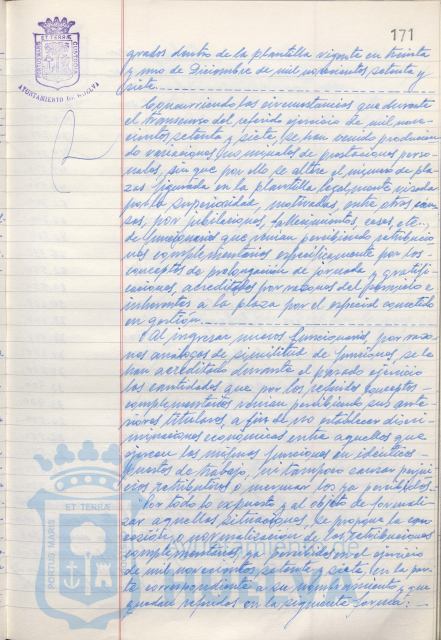 171
PORTUS MARIS ET TERRÆ CUSTODIA
AYUNTAMIENTO DE HUELVA
grados dentro de la plantilla vigente en treinta
y uno de Diciembre de mil novecientos setenta y
siete.
Concurriendo las circunstancias que durante
el transcurso del referido ejercicio de mil nove-
cientos setenta y siete, se han venido producien-
do variaciones mensuales de prestaciones perso-
nales, sin que por ello se altere el número de pla-
zas figurada en la plantilla legalmente visada
por la superioridad, motivadas, entre otras cau-
sas, por jubilaciones, fallecimientos, ceses, etc..,
de funcionarios que venian percibiendo retribucio-
nes complementarias específicamente por los-
conceptos de prolongación de jornada y gratifi-
caciones, acreditadas por razones del puesto e
inherentes a la plaza por el especial cometido
en gestión.
Al ingresar nuevos funcionarios, por razo-
nes análogas de similitud de funciones, se le
han acreditado durante el pasado ejercicio
las cantidades que por los referidos conceptos-
complementarios venian percibiendo sus ante-
riores titulares, a fin de no establecer discri-
minaciones económicas entre aquellos que
ejercen las mismas funciones en idénticos-
puestos de trabajo, ni tampoco causar perjui-
cios retributivos o mermar los ya percibidos.-
Por todo lo expuesto y al objeto de formali-
zar aquellas situaciones, se propone la con-
cesión o normalización de las retribuciones
complementarias ya percibidas en el ejercicio
de mil novecientos setenta y siete, en la par-
te correspondiente a su nombramiento y que
quedan referidos en la siguiente forma: -
PORTUS MARIS ET TERRÆ CUSTODIA
HUELVA